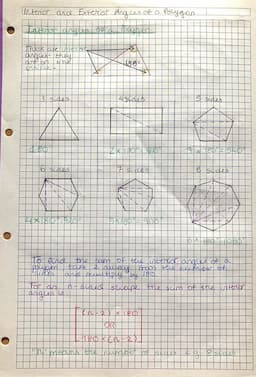 Interior and Exterior Angles of a Polygon
Interior angles of a Polygon
These are interior
angles they
are on the
inside
180°
3 sides 4 sides 5 sides
180° 2 x 180 = 360° 3 x 180° = 540°
6 sides 7 sides 8 sides
4 x 180 = 720° 5 x 180° = 900°
6 x 180 = 1080°
To find the sum of the interior angles of a
polygon take 2 away from the number of
sides and multiply by 180
For an n-sided shape the sum of the interior
angles is
(n-2) x 180
OR
180 x (n-2)
"n" means the number of sides e.g. 8 sides